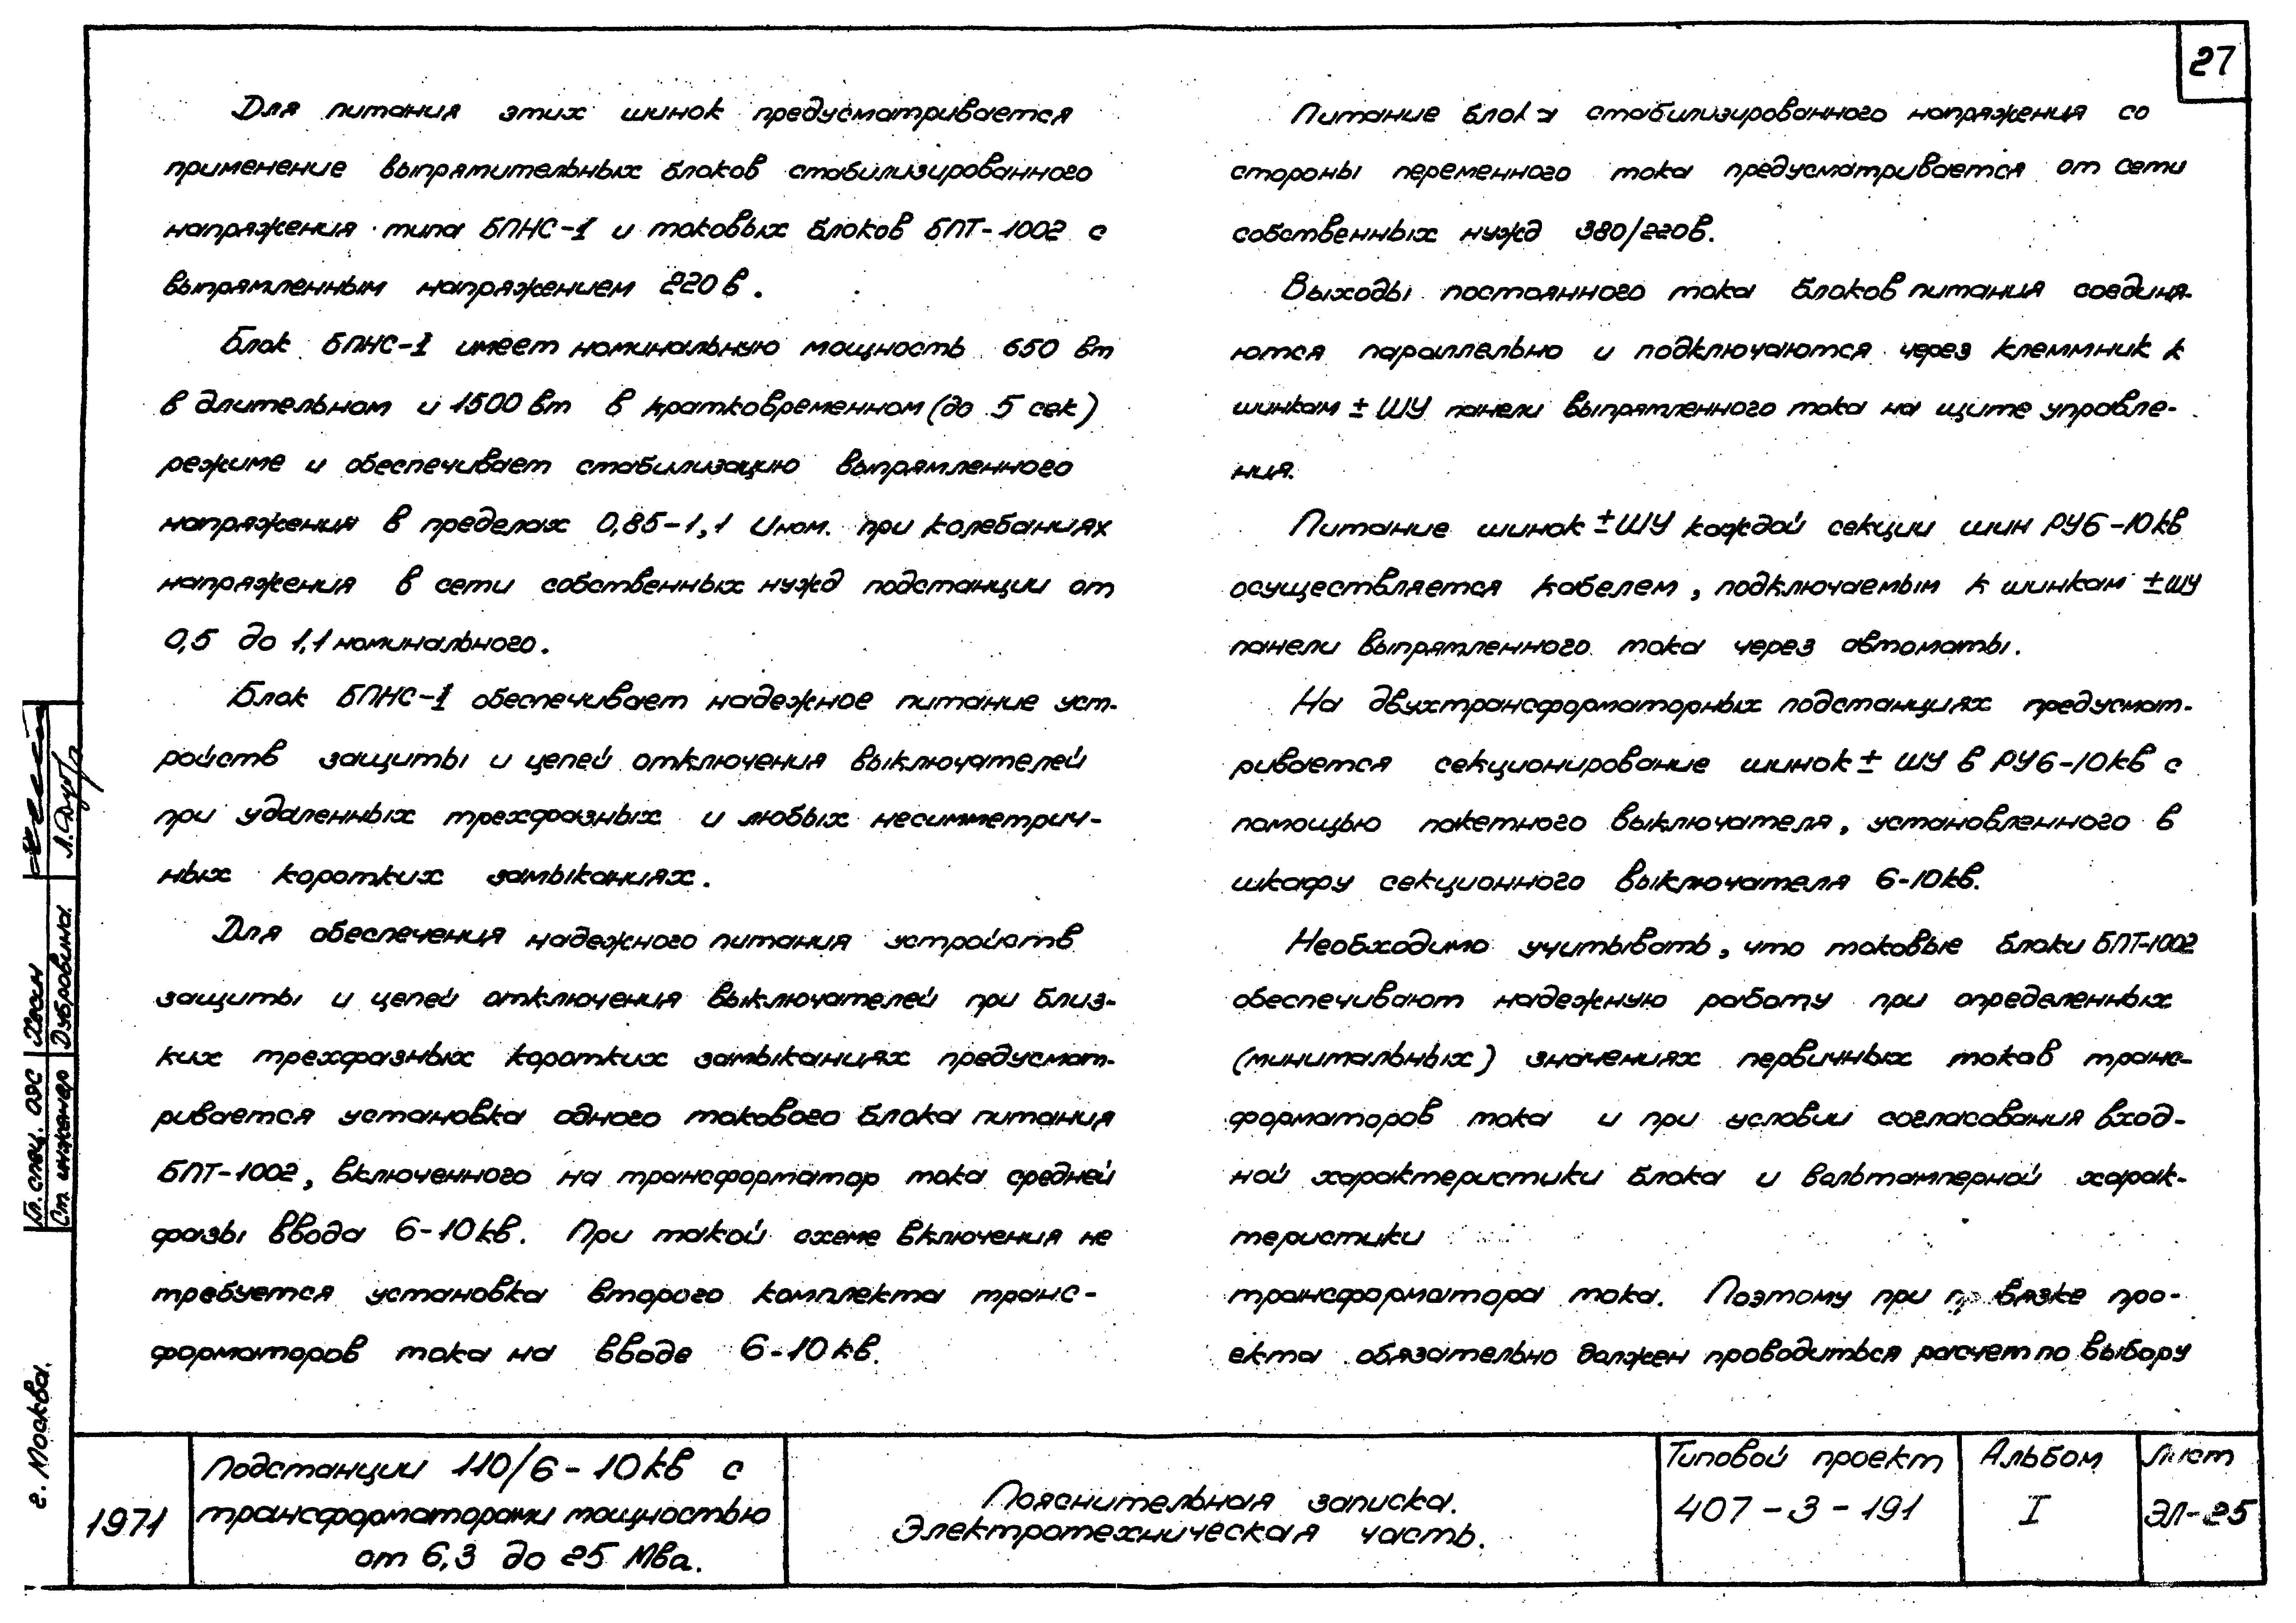 27
Для питания этих шинок предусматривается
применение выпрямительных блоков стабилизированного
напряжения типа БПНС-1 и токовых блоков БПТ-1002 с
выпрямленным напряжением 220 в.
Блок БПНС-1 имеет номинальную мощность 650 вт
в длительном и 1500 вт в кратковременном (до 5 сек)
режиме и обеспечивает стабилизацию выпрямленного
напряжения в пределах 0,85-1,1 Uном. при колебаниях
напряжения в сети собственных нужд подстанции от
0,5 до 1,1 номинального.
Блок БПНС-1 обеспечивает надежное питание уст-
ройств защиты и цепей отключения выключателей
при удаленных трехфазных и любых несимметрич-
ных коротких замыканиях.
Для обеспечения надежного питания устройств
защиты и цепей отключения выключателей при близ-
ких трехфазных коротких замыканиях предусмат-
ривается установка одного токового блока питания
БПТ-1002, включенного на трансформатор тока средней
фазы ввода 6-10 кв. При такой схеме включения не
требуется установка второго комплекта транс-
форматоров тока на вводе 6-10 кв.
Питание блока стабилизированного напряжения со
стороны переменного тока предусматривается от сети
собственных нужд 380/220в.
Выходы постоянного тока блоков питания соединя-
ются параллельно и подключаются через клеммник к
шинкам ± ШУ панели выпрямленного тока на щите управле-
ния.
Питание шинок ± ШУ каждой секции шин РУ6-10 кв
осуществляется кабелем, подключаемым к шинкам ± ШУ
панели выпрямленного тока через автоматы.
На двухтрансформаторных подстанциях предусмат-
ривается секционирование шинок ± ШУ в РУ6-10 кв с
помощью пакетного выключателя, установленного в
шкафу секционного выключателя 6-10 кв.
Необходимо учитывать, что токовые блоки БПТ-1002
обеспечивают надежную работу при определенных
(минимальных) значениях первичных токов транс-
форматоров тока и при условии согласования вход-
ной характеристики блока и вольтамперной харак-
теристики
трансформатора тока. Поэтому при привязке про-
екта обязательно должен проводиться расчет по выбору
Гл. спец. ОЭС Хволин
Ст. инженер Дубровина Л.Дуб
г. Москва.
1971
Подстанции 110/6-10 кв с
трансформаторами мощностью
от 6,3 до 25 Мва.
Пояснительная записка.
Электротехническая часть.
Типовой проект
407-3-191
Альбом
I
Лист
ЭЛ-25